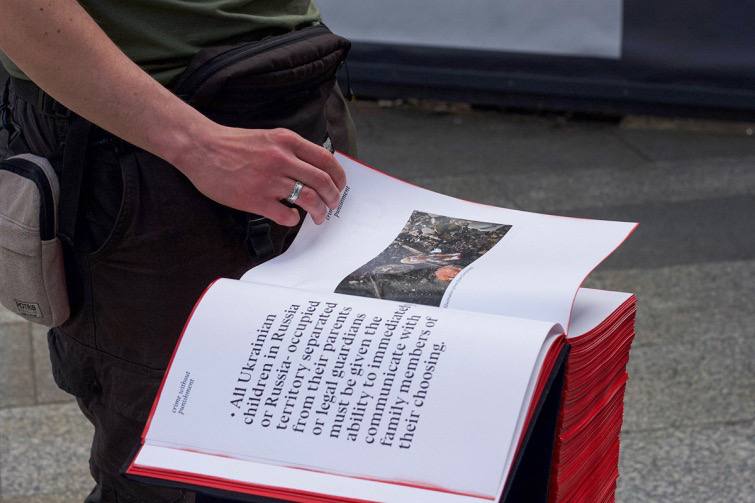 • All Ukrainian
children in Russia
or Russia- occupied
territory separated
from their parents
or legal guardians
must be given the
ability to immediately
communicate with
family members of
their choosing.
crime without
punishment
crime
punishment